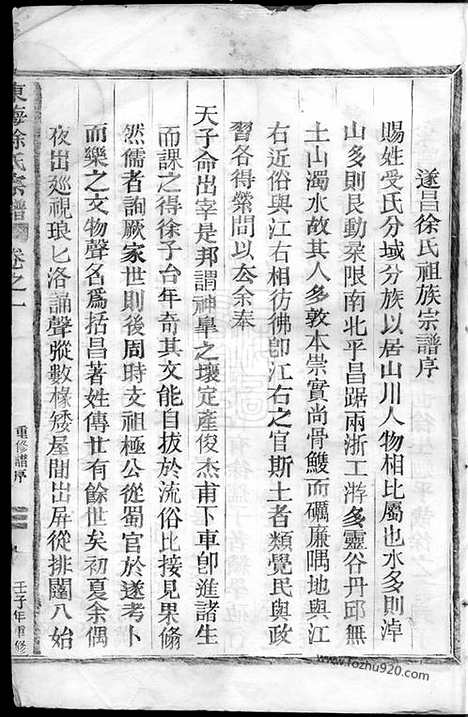 遂昌徐氏祖族宗譜序
賜姓受氏分域分族以居山川人物相比屬也水多則淖
山多則艮動枲限南北平昌踞兩浙工游多靈谷丹邱無
土山濁水故其人多敦本崇實尚骨鯁而礪廉隅地與江
右近俗與江右相彷彿卽江右之官斯土者類覺民與政
習各得榮問以厺余奉
天子命出宰是邦謂神臯之壤定產俊杰甫下車卽進諸生
而課之得徐子台年奇其文能自拔於流俗比接見果脩
然儒者詢厥家世則後周時支祖極公從蜀官於遂考卜
而樂之文物聲名爲括昌著姓傳廿有餘世矣初夏余偶
夜出廵視琅匕洛誦聲從數椽矮屋閒出屏從排闥入始
東海徐氏宗譜 卷之一
重修譜序
壬子年重修
www.fozhu920.com